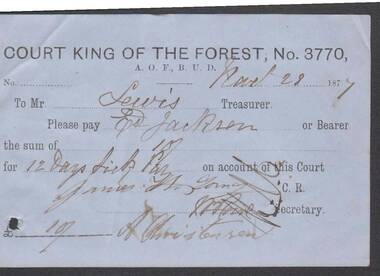 COURT KING OF THE FOREST, No. 3770,
A. O. F., B. U. D.
No. 28 1877
To Mr Lewis Treasurer.
Please pay Ed Jackson or Bearer
the sum of 10/
for 12 Days Sick Pay on account of this Court
C. R.
Secretary.
£ 10/